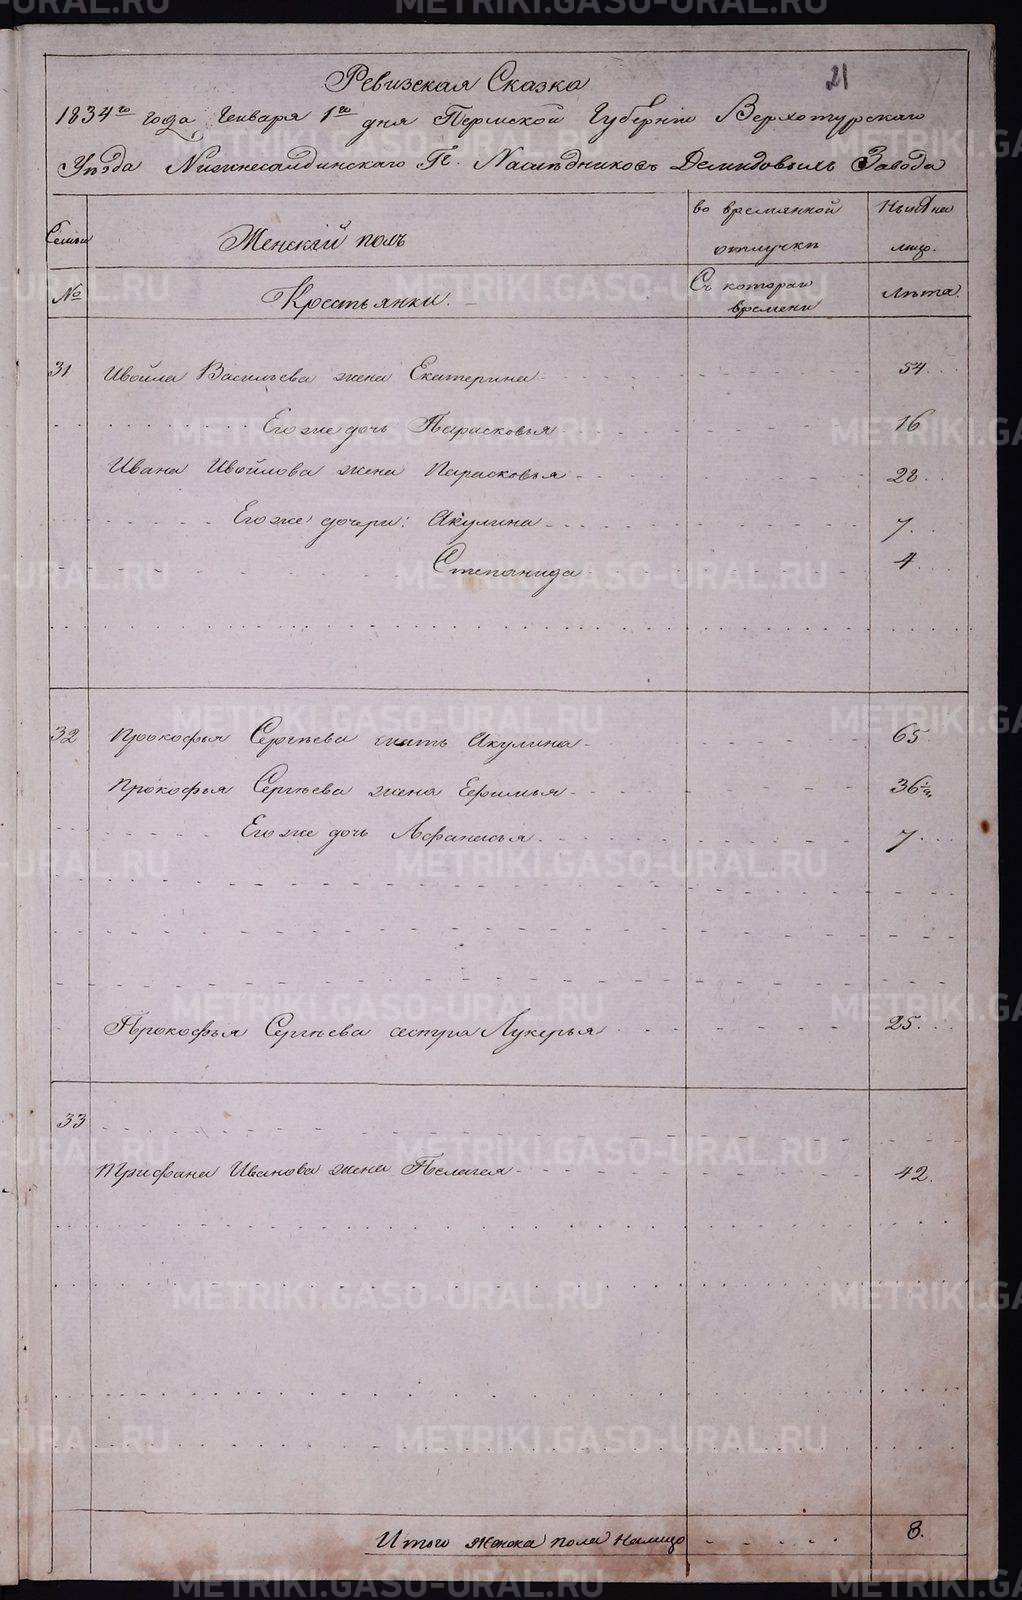 21
Ревизская Сказка
1834го года Генваря 1го дня Пермской Губерніи Верхотурскаго
Уѣзда Нижнесалдинскаго Гг. Наслѣдниковъ Демидовыхъ Завода
Семьи
Женскій полъ
во временной отлучкѣ
Нынѣ на лицо.
№
Крестьянки.
Съ котораго времени
Лѣта.
31 Ивойла Васильева жена Екатерина 54
Его же дочь Парасковья 16
Ивана Ивойлова жена Парасковья 28
Его же дочери: Акулина 7.
Степанида 4
32 Прокофья Сергѣева мать Акулина 65
Прокофья Сергѣева жена Ефимья 36½
Его же дочь Афанасья 7
Прокофья Сергѣева сестра Лукерья 25
33
Трифана Иванова жена Пелагея 42.
Итого женска пола налицо 8.
METRIKI.GASO-URAL.RU